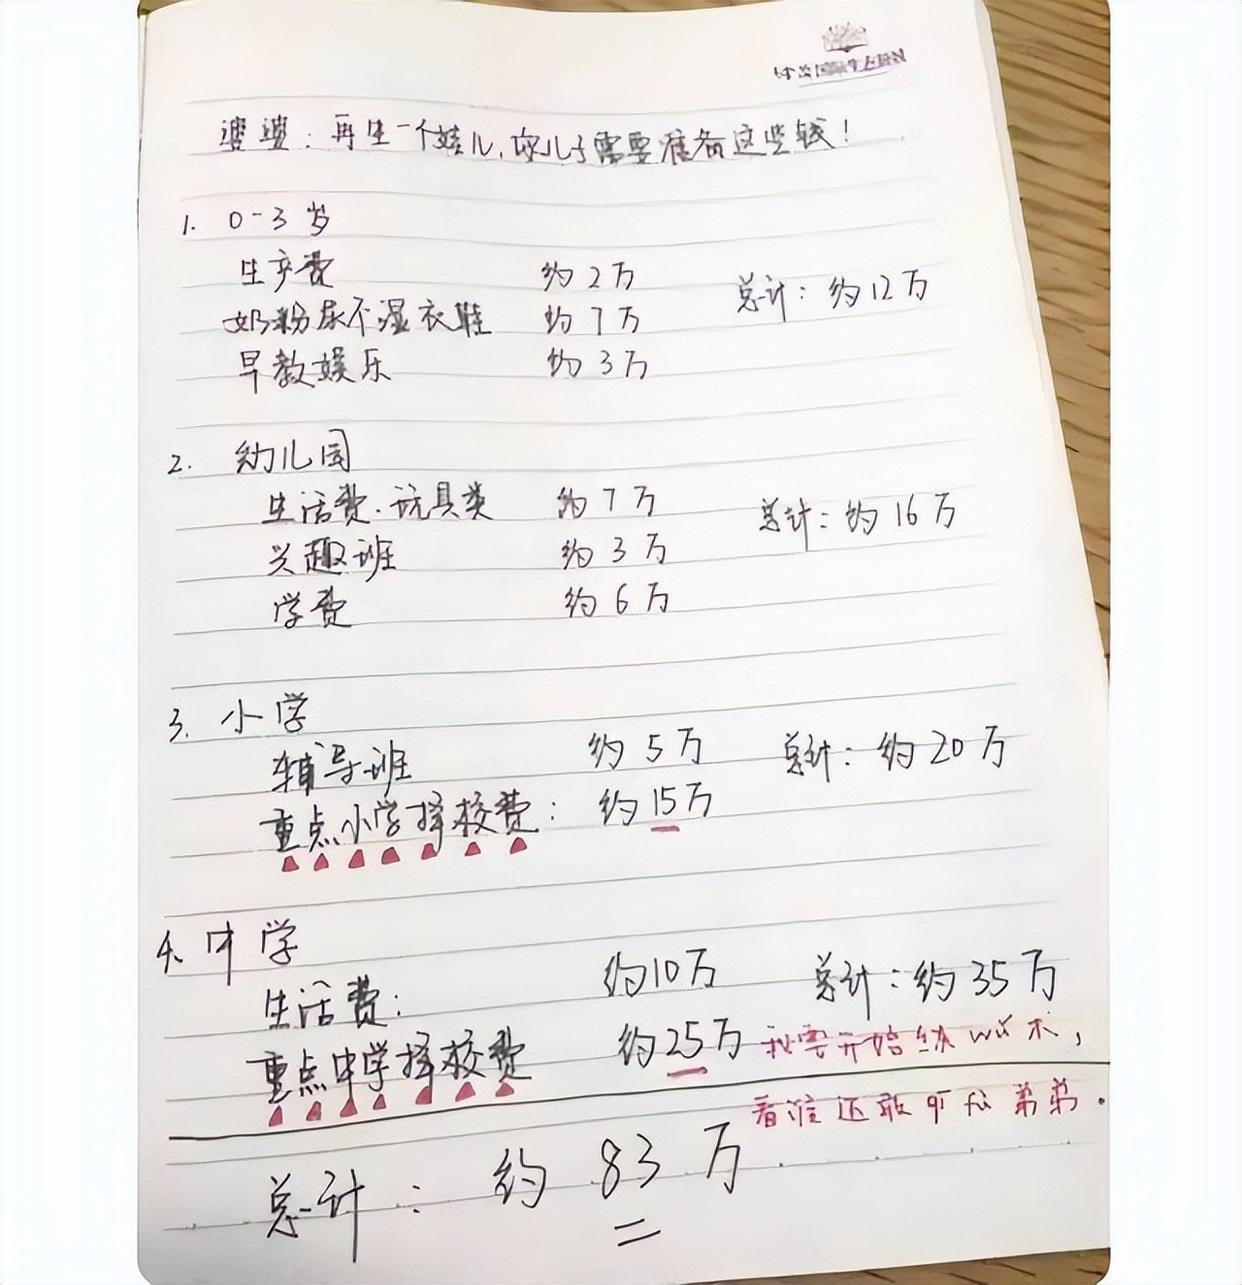 婆婆：再生一个娃儿，你儿子需要准备这些钱！
1. 0-3岁
生产费 约2万 总计：约12万
奶粉尿不湿衣鞋 约7万
早教娱乐 约3万
2. 幼儿园
生活费.玩具类 约7万 总计：约16万
兴趣班 约3万
学费 约6万
3. 小学
辅导班 约5万 总计：约20万
重点小学择校费： 约15万
4. 中学
生活费： 约10万 总计：约35万
重点中学择校费 约25万 我要开始练 术，
看谁还敢 弟弟.
总计： 约83万